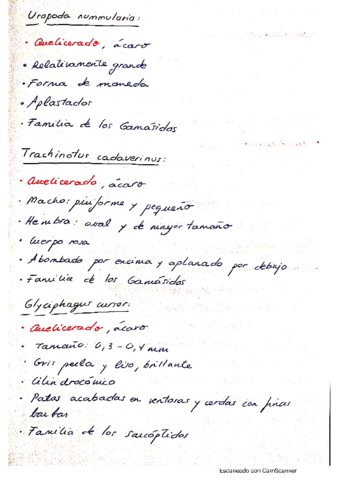 Uropoda nummularia:
• Quelicerado, ácaro
• Relativamente grande
• Forma de moneda
• Aplastados
• Familia de los Gamásidos
Trachinotus cadaverinus:
• Quelicerado, ácaro
• Macho: piriforme y pequeño
• Hembra: oval y de mayor tamaño
• Cuerpo rosa
• Abombado por encima y aplanado por debajo
• Familia de los Gamásidos
Glyciphagus cursor:
• Quelicerado, ácaro
• Tamaño: 0,3 - 0,4 mm
• Gris perla y liso, brillante
• Cilindrocónico
• Patas acabadas en ventosas y cerdas con finas
barbas
• Familia de los sarcóptidos
Escaneado con CamScanner